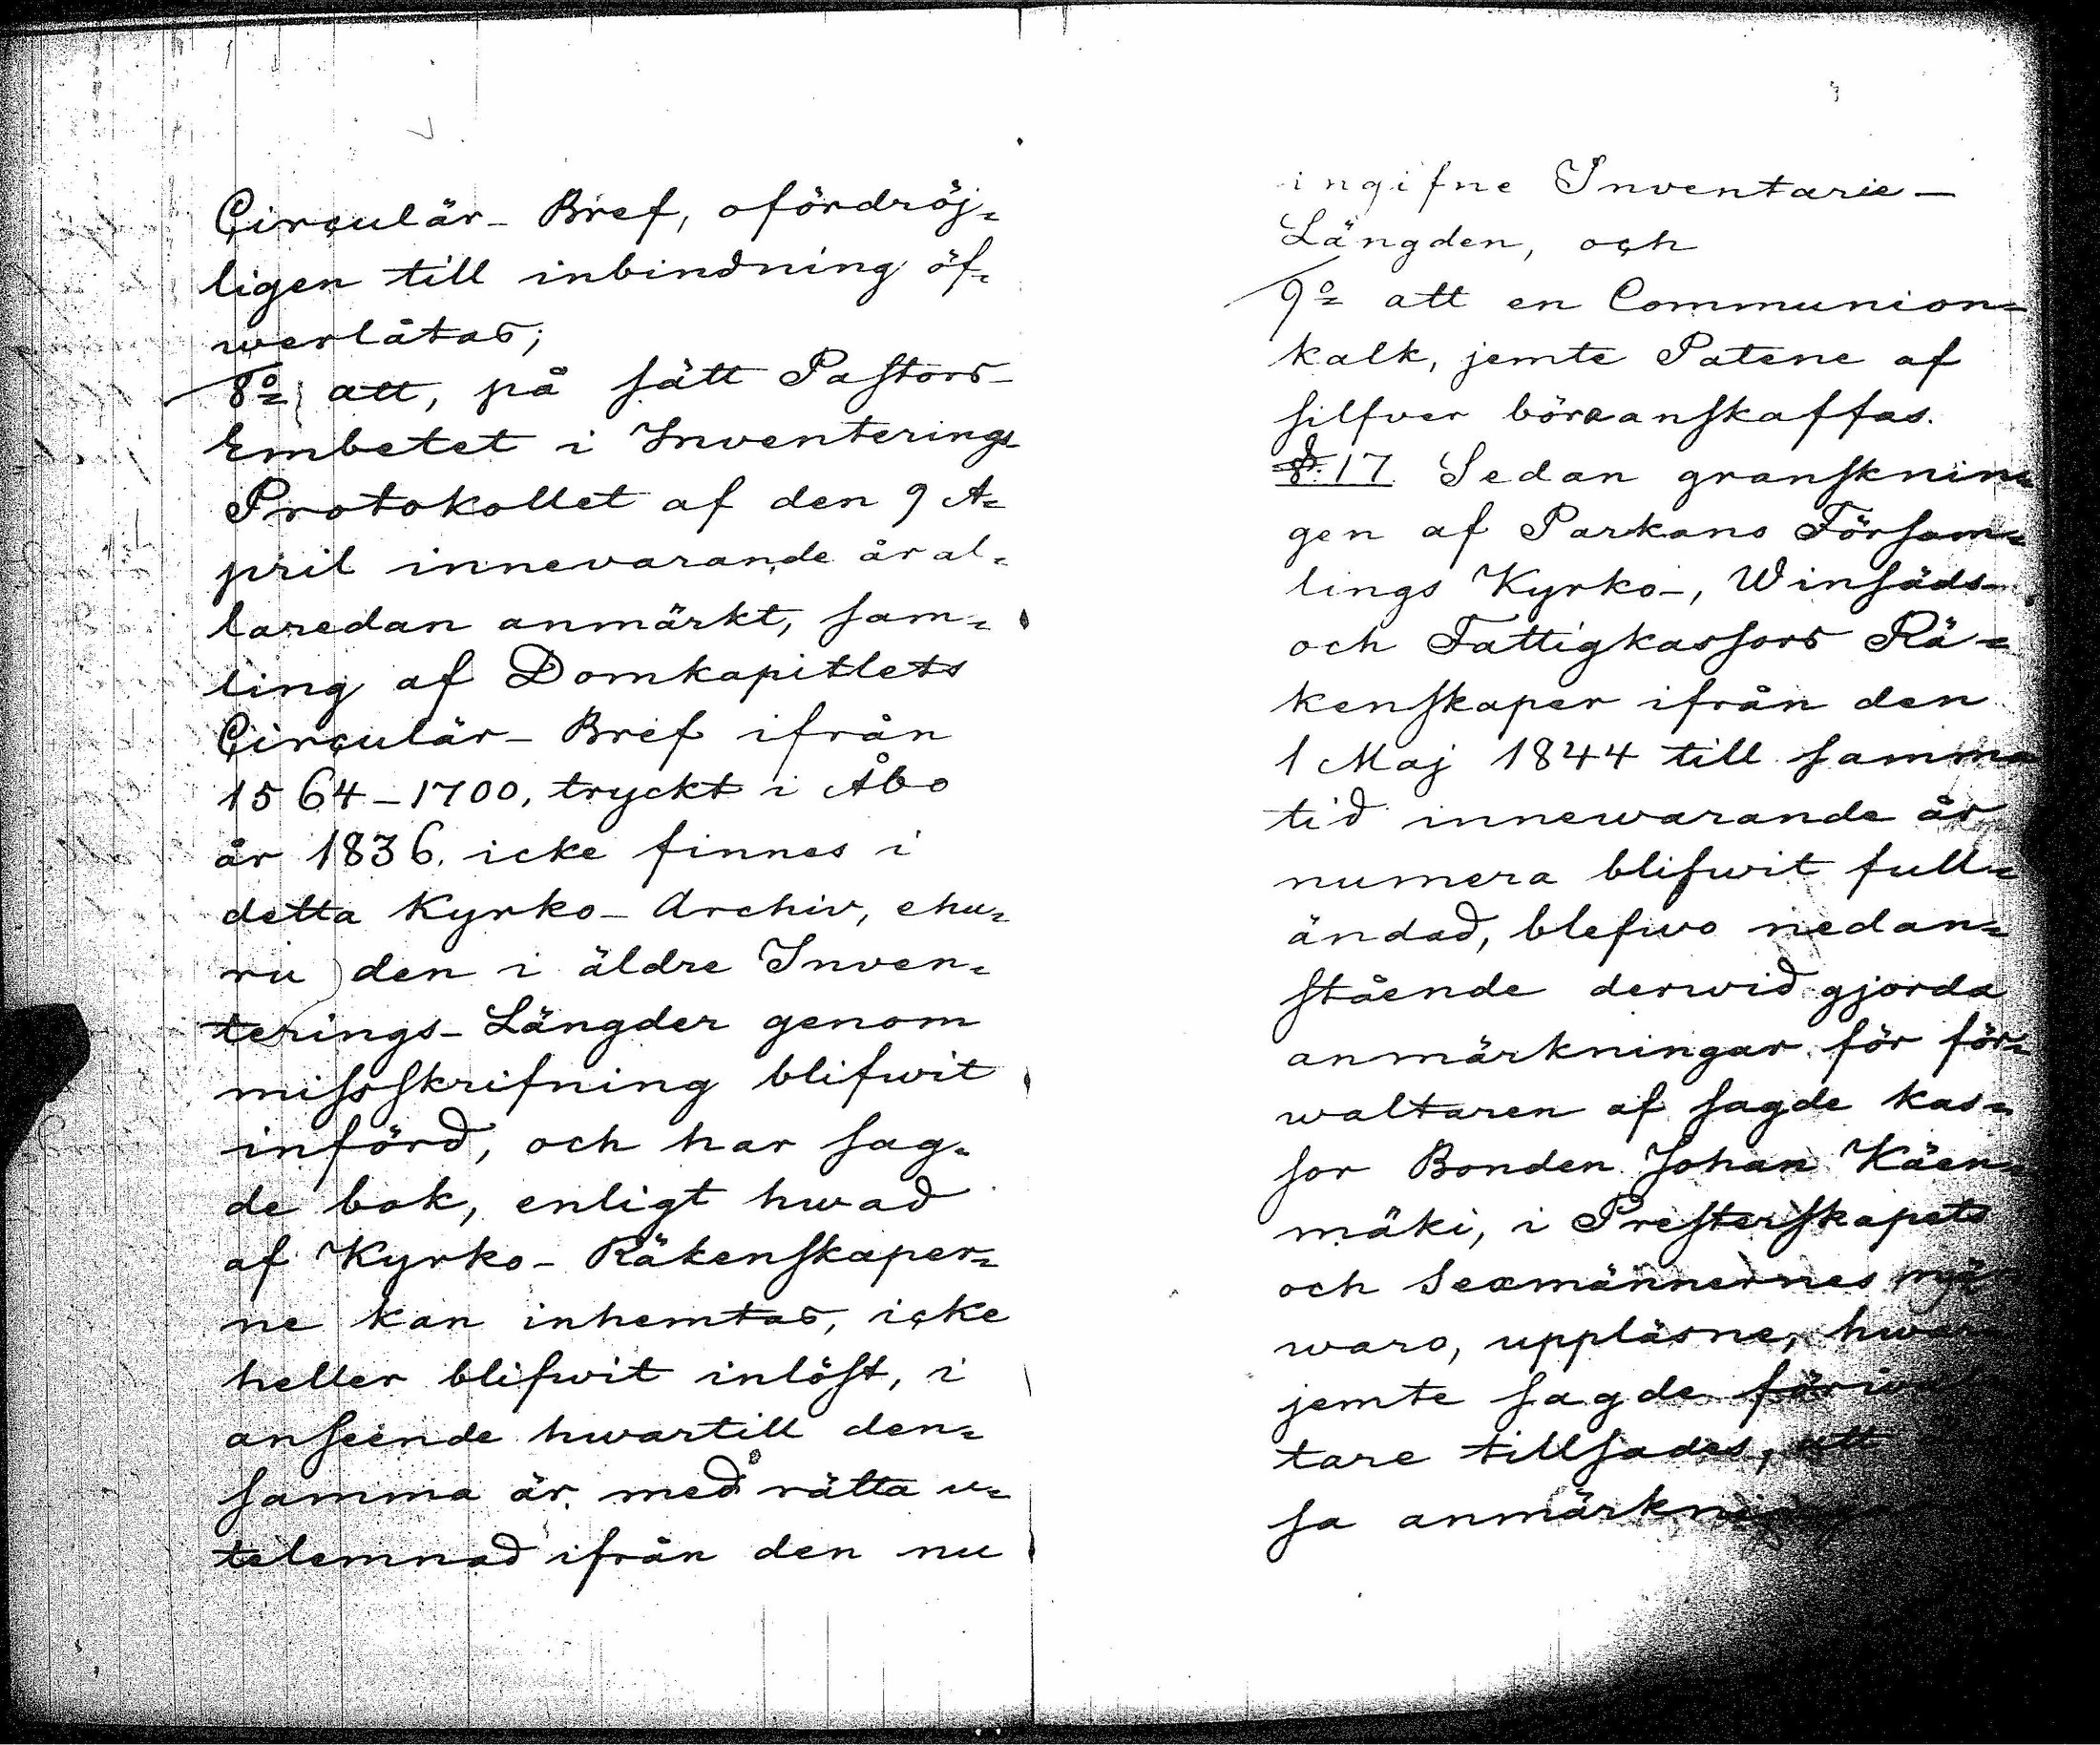 Circulär- Bref, ofördröj=
ligen till inbindning öf=
werlåtas;
8o= att, på sätt Pastors-
Embetet i Inventerings-
Protokollet af den 9 A=
pril innevarande år al=
laredan anmärkt, sam=
ling af Domkapitlets
Circulär- Bref ifrån
1564-1700, tryckt i Åbo
år 1836. icke finnes i
detta Kyrko- Archiv, ehu=
ru den i äldre Inven=
terings- Längder genom
missskrifning blifwit
införd, och har sag=
de bok, enligt hwad
af Kyrko- Räkenskaper=
ne kan inhemtas, icke
heller blifwit inlöst, i
anseende hwartill den=
samma är med rätta u=
telemnad ifrån den nu
ingifne Inventarie-
Längden, och
9o= att en Communion=
kalk, jemte Patene af
silfver böra anskaffas.
§. 17. Sedan gransknin=
gen af Parkano Försam=
lings Kyrko-, Winsäds-,
och Fattigkassors Rä=
kenskaper ifrån den
1 Maj 1844 till samma
tid innewarande år
numera blifwit full=
ändad, blefwo nedan=
stående derwid gjorda
anmärkningar för för=
waltaren af sagde kas=
sor Bonden Johan Käen=
mäki, i Presterskapets
och Sexmännernes
waro, uppläsne,
jemte sagde
tare tillsades, att
sa